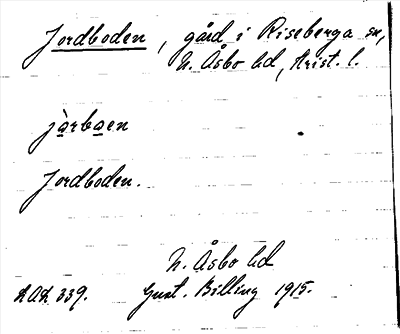 Jordboden, gård i Riseberga sn,
N. Åsbo hd, Krist. l.
jàrboen
Jordboden.
N. Åsbo hd
Gust. Billing 1915.